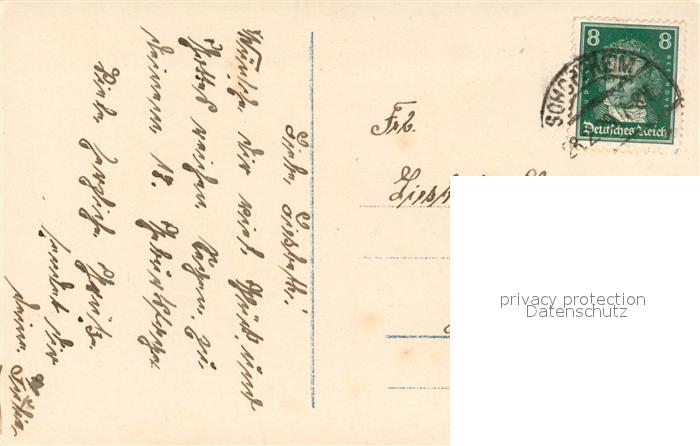 Liebe Liesbeth!
Wünsche Dir viel Glück und
Gottes reichen Segen zu
Deinem 18. Geburtstage.
Viele herzliche Grüße
sendet Dir
Deine
Frl.
8 8
BEETHOVEN
Deutsches Reich
privacy protection
Datenschutz